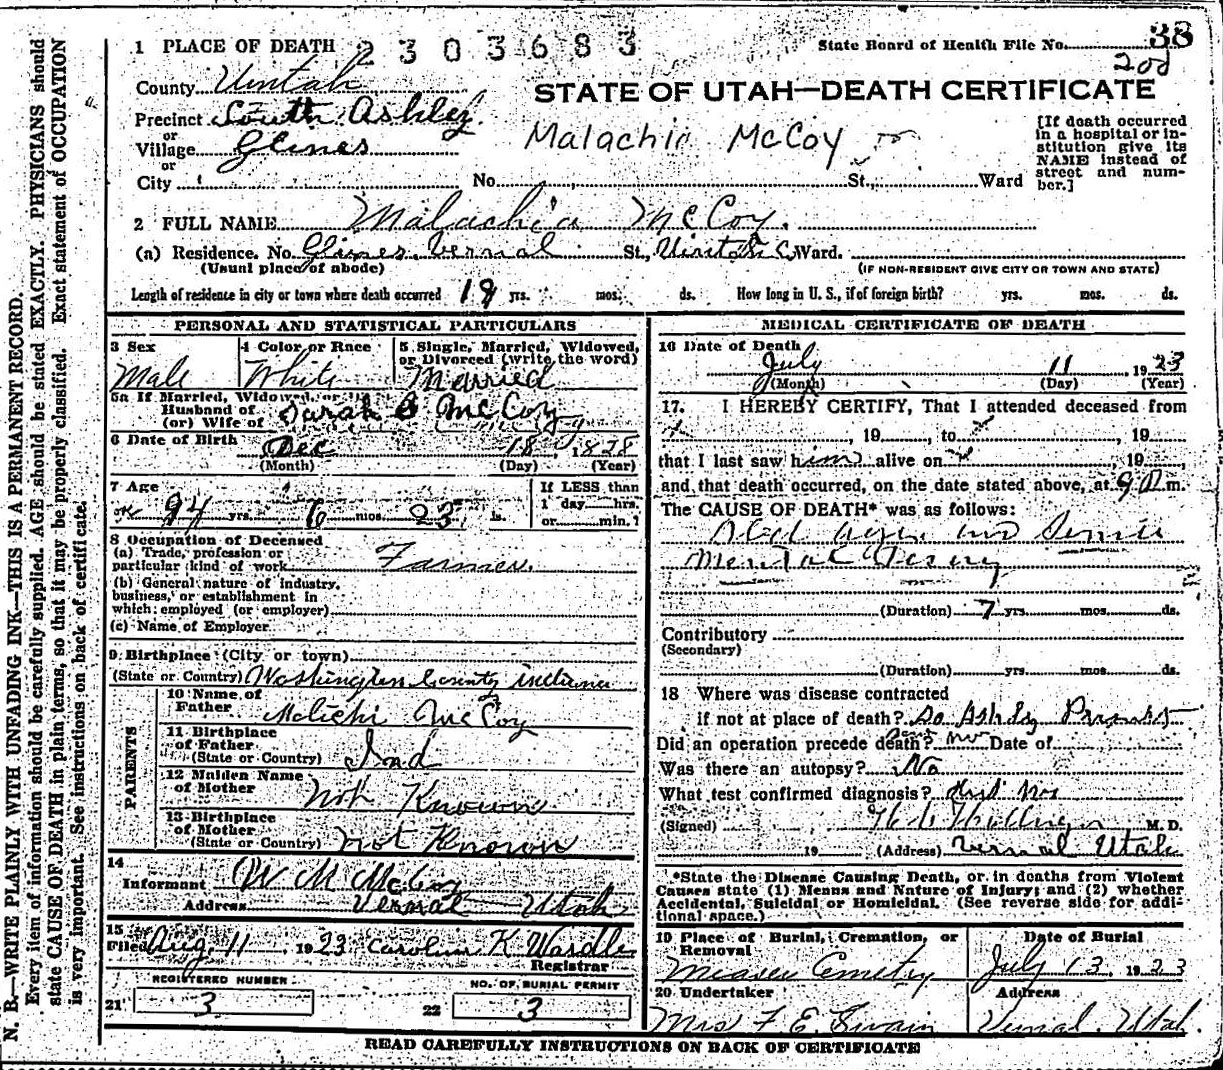 N. B.—WRITE PLAINLY WITH UNFADING INK—THIS IS A PERMANENT RECORD.
Every item of information should be carefully supplied. AGE should be stated EXACTLY. PHYSICIANS should
state CAUSE OF DEATH in plain terms, so that it may be properly classified. Exact statement of OCCUPATION
is very important. See instructions on back of certificate.
1 PLACE OF DEATH 2303683
State Board of Health File No. 38
208
County Uintah
STATE OF UTAH—DEATH CERTIFICATE
Precinct South Ashley
or
Village Glines
or
City No. St., Ward
Malachia McCoy
[If death occurred
in a hospital or in-
stitution give its
NAME instead of
street and num-
ber.]
2 FULL NAME Malachia McCoy.
(a) Residence. No. Glines. Vernal St., Uintah C. Ward.
(Usual place of abode) (IF NON-RESIDENT GIVE CITY OR TOWN AND STATE)
Length of residence in city or town where death occurred 19 yrs. mos. ds. How long in U. S., if of foreign birth? yrs. mos. ds.
PERSONAL AND STATISTICAL PARTICULARS
3 Sex
Male
4 Color or Race
White
5 Single, Married, Widowed,
or Divorced (write the word)
Married
5a If Married, Widowed, or
Husband of
(or) Wife of Sarah McCoy
6 Date of Birth Dec 18, 1828
(Month) (Day) (Year)
7 Age
94 yrs. 6 mos. 23 ds.
If LESS than
1 day hrs.
or min.?
8 Occupation of Deceased
(a) Trade, profession or
particular kind of work Farmer.
(b) General nature of industry,
business, or establishment in
which employed (or employer)
(c) Name of Employer
9 Birthplace (City or town)
(State or Country) Washington County indiana
PARENTS
10 Name of
Father Melichi McCoy
11 Birthplace
of Father
(State or Country) Ind
12 Maiden Name
of Mother Not Known
13 Birthplace
of Mother
(State or Country) not Known
14
Informant W M McCoy
Address Vernal Utah
15
Filed Aug. 11 1923 Carolin K Wardle
Registrar
REGISTERED NUMBER
21 3
NO. OF BURIAL PERMIT
22 3
MEDICAL CERTIFICATE OF DEATH
16 Date of Death
July 11 1923
(Month) (Day) (Year)
17. I HEREBY CERTIFY, That I attended deceased from
, 19 , to , 19
that I last saw him alive on , 19
and that death occurred, on the date stated above, at 9 m.
The CAUSE OF DEATH* was as follows:
Mental
(Duration) 7 yrs. mos. ds.
Contributory
(Secondary)
(Duration) yrs. mos. ds.
18 Where was disease contracted
if not at place of death? So Ashley
Did an operation precede death? no Date of
Was there an autopsy? No
What test confirmed diagnosis?
(Signed) M. D.
19 (Address) Vernal Utah
*State the Disease Causing Death, or in deaths from Violent
Causes state (1) Means and Nature of Injury; and (2) whether
Accidental, Suicidal or Homicidal. (See reverse side for addi-
tional space.)
19 Place of Burial, Cremation, or
Removal
Maeser Cemetry
Date of Burial
July 13, 1923
20 Undertaker
Mrs F. E. Swain
Address
Vernal. Utah.
READ CAREFULLY INSTRUCTIONS ON BACK OF CERTIFICATE